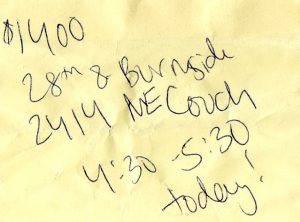 $1400
28th & Burnside
2414 NE Couch
4:30 - 5:30
today!